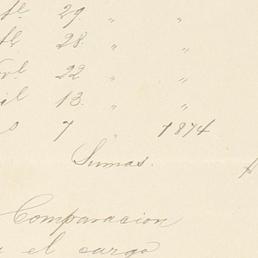 29 " "
28 " "
22 " "
13 " "
7 " 1874
Sumas.
Comparacion
el cargo